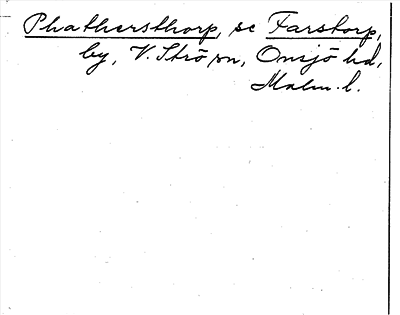 Phathersthorp, se Farstorp,
by, V. Strö sn, Onsjö hd,
Malm. l.